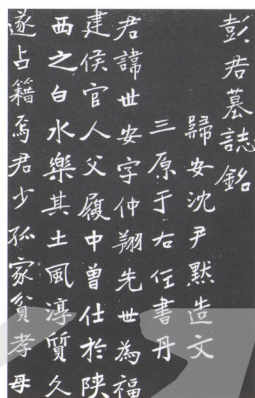 彭君墓誌銘
歸安沈尹默造文
三原于右任書丹
君諱世安字仲翔先世為福
建侯官人父履中曾仕於陝
西之白水樂其土風淳質久
遂占籍焉君少孤家貧孝母